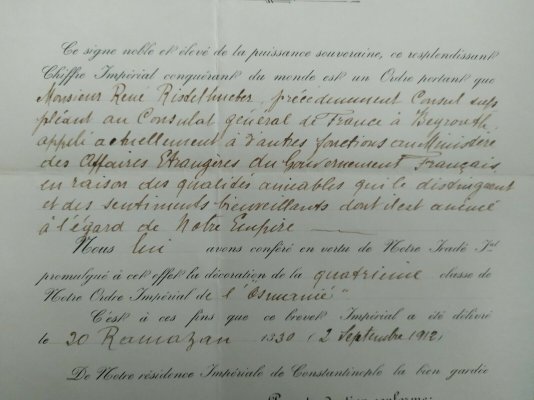 Ce signe noble et élevé de la puissance souveraine, ce resplendissant
Chiffre Impérial conquérant du monde est un Ordre portant que
Monsieur René Ristelhueber, précédemment Consul sup
pléant au Consulat général de France à Beyrouth
appelé actuellement à d'autres fonctions au Ministère
des Affaires Etrangères du Gouvernement Français,
en raison des qualités aimables qui le distinguent
et des sentiments bienveillants dont il est animé
à l'égard de Notre Empire
Nous lui avons conféré en vertu de Notre Iradé Jal
promulgué à cet effet la décoration de la quatrième classe de
Notre Ordre Impérial de l'"Osmanié"
C'est à ces fins que ce brevet Impérial a été délivré
le 20 Ramazan 1330 (2 Septembre 1912)
De Notre résidence Impériale de Constantinople la bien gardée